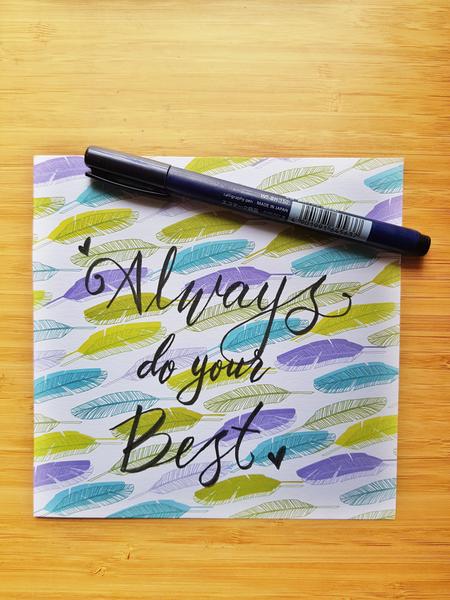 Calligraphy pen MADE IN JAPAN
Always
do your
Best